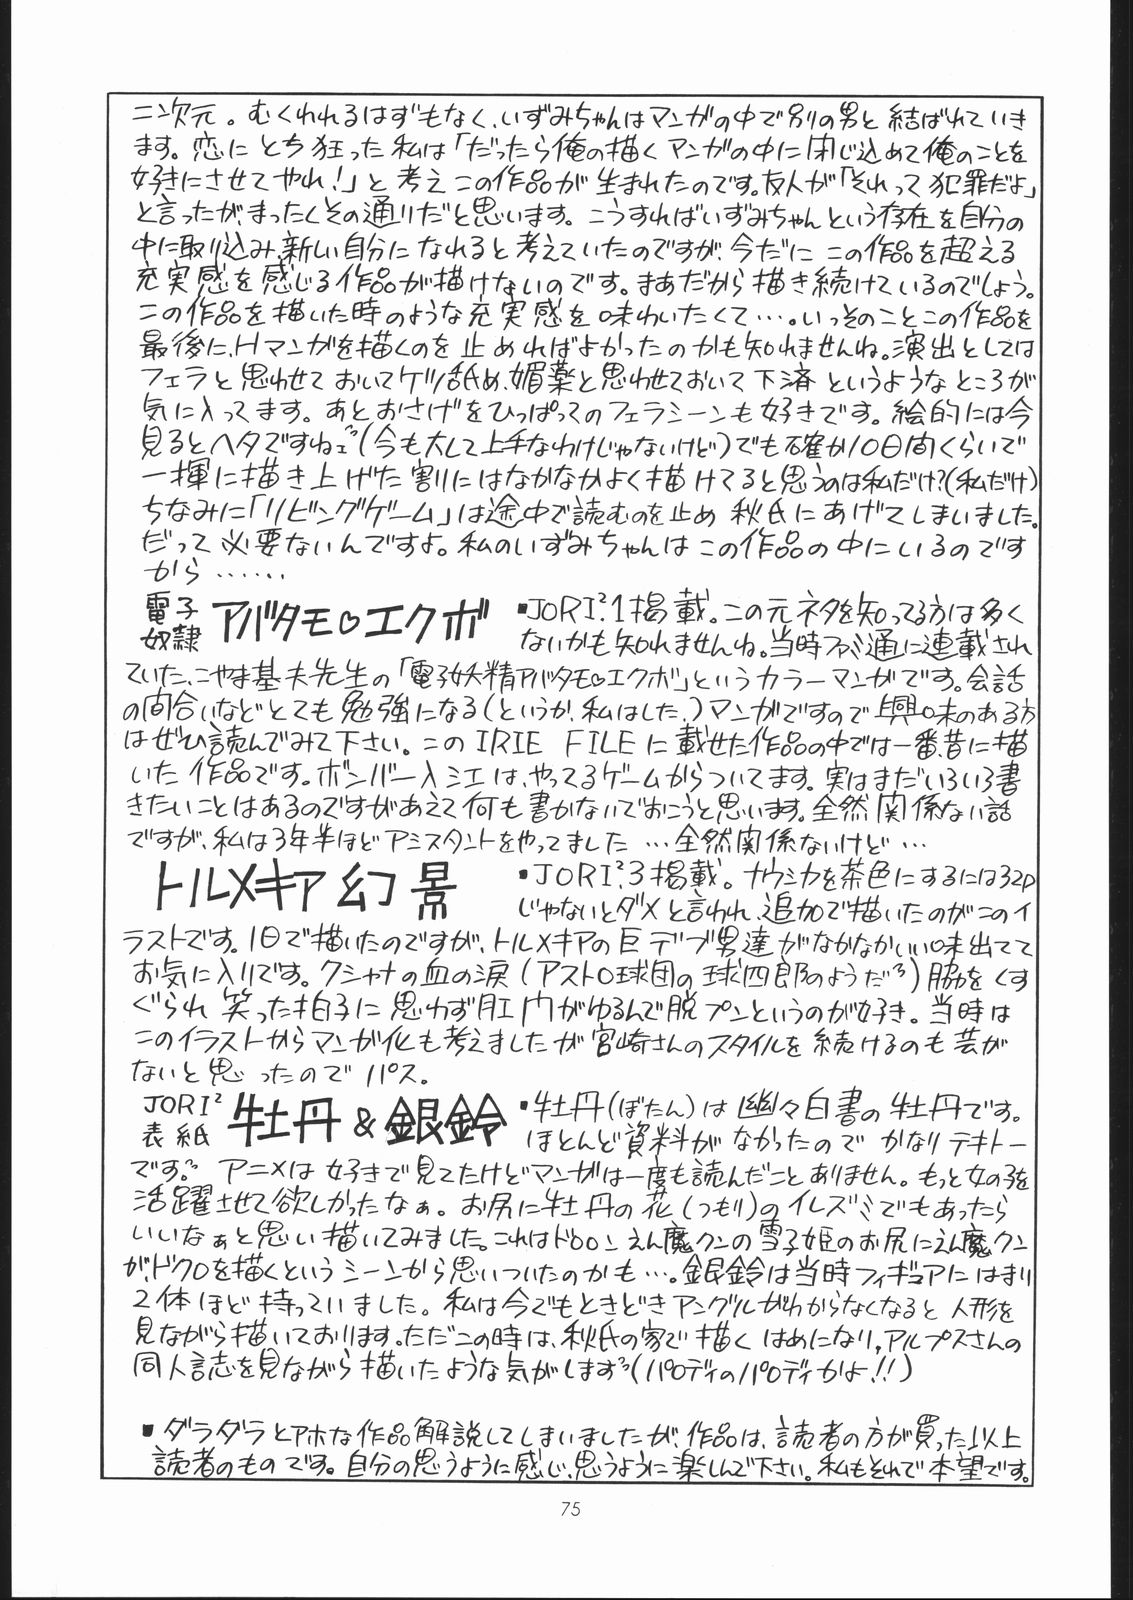 二次元。むくわれるはずもなく、いずみちゃんはマンガの中で別の男と結ばれていき
ます。恋にとち狂った私は「だったら俺の描くマンガの中に閉じ込めて俺のことを
好きにさせてやれ!」と考えこの作品が生まれたのです。友人が「それって犯罪だよ」
と言ったが、まったくその通りだと思います。こうすればいずみちゃんという存在を自分の
中に取り込み、新しい自分になれると考えていたのですが、今だにこの作品を超える
充実感を感じる作品が描けないのです。まあだから描き続けているのでしょう。
この作品を描いた時のような充実感を味わいたくて…。いっそのことこの作品を
最後に、Hマンガを描くのを止めればよかったのかも知れませんね。演出としては
フェラと思わせておいてケツ舐め、媚薬と思わせておいて下済というようなところが
気に入ってます。あとおさげをひっぱってのフェラシーンも好きです。絵的には今
見るとヘタですねェ(今も大して上手なわけじゃないけど)でも確か10日間くらいで
一揮に描き上げた割にはなかなかよく描けてると思うのは私だけ?(私だけ)
ちなみに「リビングゲーム」は途中で読むのを止め秋氏にあげてしまいました。
だって必要ないんですよ。私のいずみちゃんはこの作品の中にいるのです
から……
電子奴隷 アバタモ♡エクボ ▪JORI²1掲載。この元ネタを知ってる方は多く
ないかも知れませんね。当時ファミ通に連載され
ていた、こやま基夫先生の「電子妖精アバタモ♡エクボ」というカラーマンガです。会話
の間合いなどとても勉強になる(というか、私はした、)マンガですので興味のある方
はぜひ読んでみて下さい。このIRIE FILEに載せた作品の中では一番、昔に描
いた作品です。ボンバー入江は、やってるゲームからついてます。実はまだいろいろ書
きたいことはあるのですがあえて何も書かないでおこうと思います。全然関係ない話
ですが、私は3年半ほどアシスタントをやってました…全然関係ないけど…
トルメキア幻景 ▪JORI²3掲載。ナウシカを茶色にするには32p
じゃないとダメと言われ、追加で描いたのがこのイ
ラストです。1日で描いたのですが、トルメキアの巨デブ男達がなかなかいい味出てて
お気に入りです。クシャナの血の涙(アストロ球団の球四郎のようだ)脇をくす
ぐられ笑った拍子に思わず肛門がゆるんで脱プンというのが好き。当時は
このイラストからマンガ化も考えましたが宮崎さんのスタイルを続けるのも芸が
ないと思ったのでパス。
JORI²表紙 牡丹&銀鈴 ▪牡丹(ぼたん)は幽々白書の牡丹です。
ほとんど資料がなかったのでかなりテキトー
です。アニメは好きで見てたけどマンガは一度も読んだことありません。もっと女の子を
活躍させて欲しかったなぁ。お尻に牡丹の花(つもり)のイレズミでもあったら
いいなぁと思い描いてみました。これはドロロンえん魔クンの雪子姫のお尻にえん魔クン
が、ドクロを描くというシーンから思いついたのかも…。銀鈴は当時フィギュアにはまり
2体ほど持っていました。私は今でもときどきアングルがわからなくなると人形を
見ながら描いております。ただこの時は、秋氏の家で描くはめになり、アルプスさんの
同人誌を見ながら描いたような気がします(パロディのパロディかよ!!)
▪ダラダラとアホな作品解説してしまいましたが、作品は、読者の方が買った以上
読者のものです。自分の思うように感じ、思うように楽しんで下さい。私もそれで本望です。
75